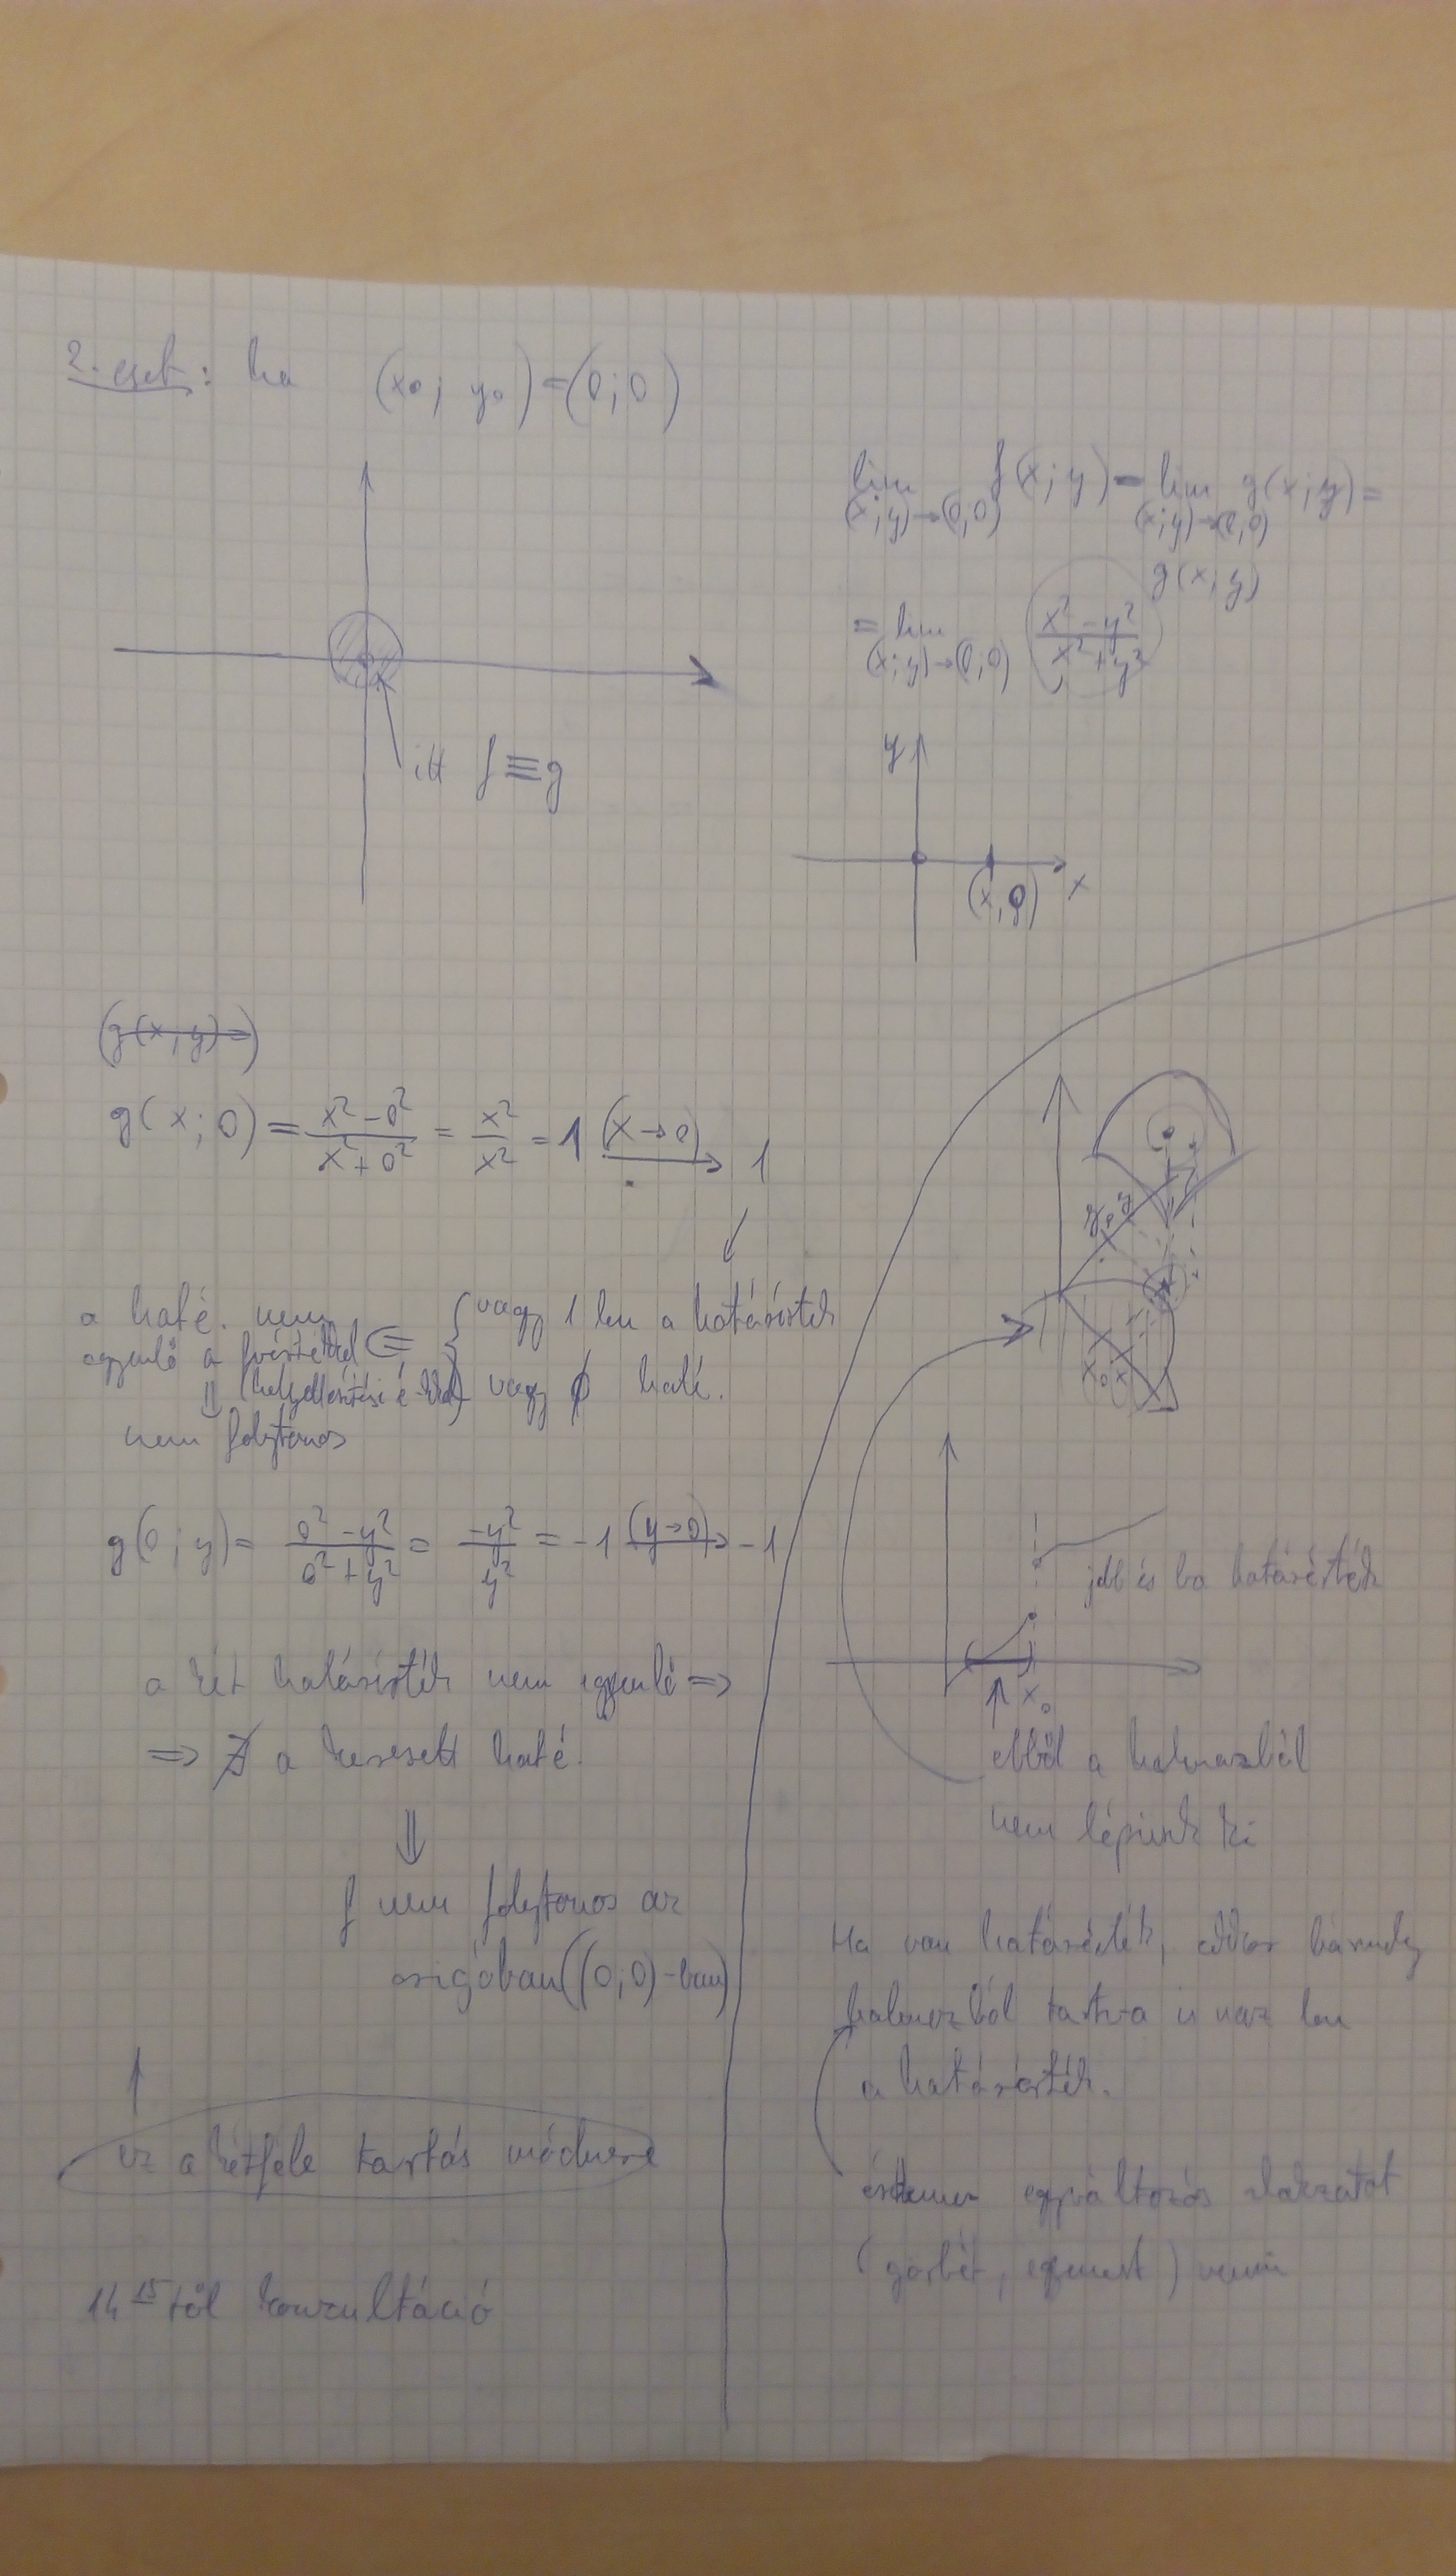 2. eset: ha (x₀; y₀) = (0; 0)
lim f(x; y) = lim g(x; y) =
(x;y)→(0;0) (x;y)→(0;0)
g(x; y)
= lim (x² − y²)/(x² + y²)
(x;y)→(0;0)
itt f ≡ g
y
x
(x, 0)
(g(x; y) =)
g(x; 0) = (x² − 0²)/(x² + 0²) = x²/x² = 1 (x→0)→ 1
a haté. nem { vagy 1 lesz a határérték
egyenlő a fvértékkel ⇐
⇓ (helyettesítési é.) vagy ∄ haté.
nem folytonos
g(0; y) = (0² − y²)/(0² + y²) = −y²/y² = −1 (y→0)→ −1
a két határérték nem egyenlő ⇒
⇒ ∄ a keresett haté.
⇓
f nem folytonos az
origóban ((0; 0)-ban)
↑
ez a kétféle tartás módszere
14 15-től konzultáció
y₀ y
x₀ x
jobb és bal határérték
↑ x₀
ebből a halmazból
nem lépünk ki
Ha van határérték, akkor bármely
halmazból tartva is ugyanaz lesz
a határérték.
érdemes egyváltozós alakzatot
(görbét, egyenest) venni